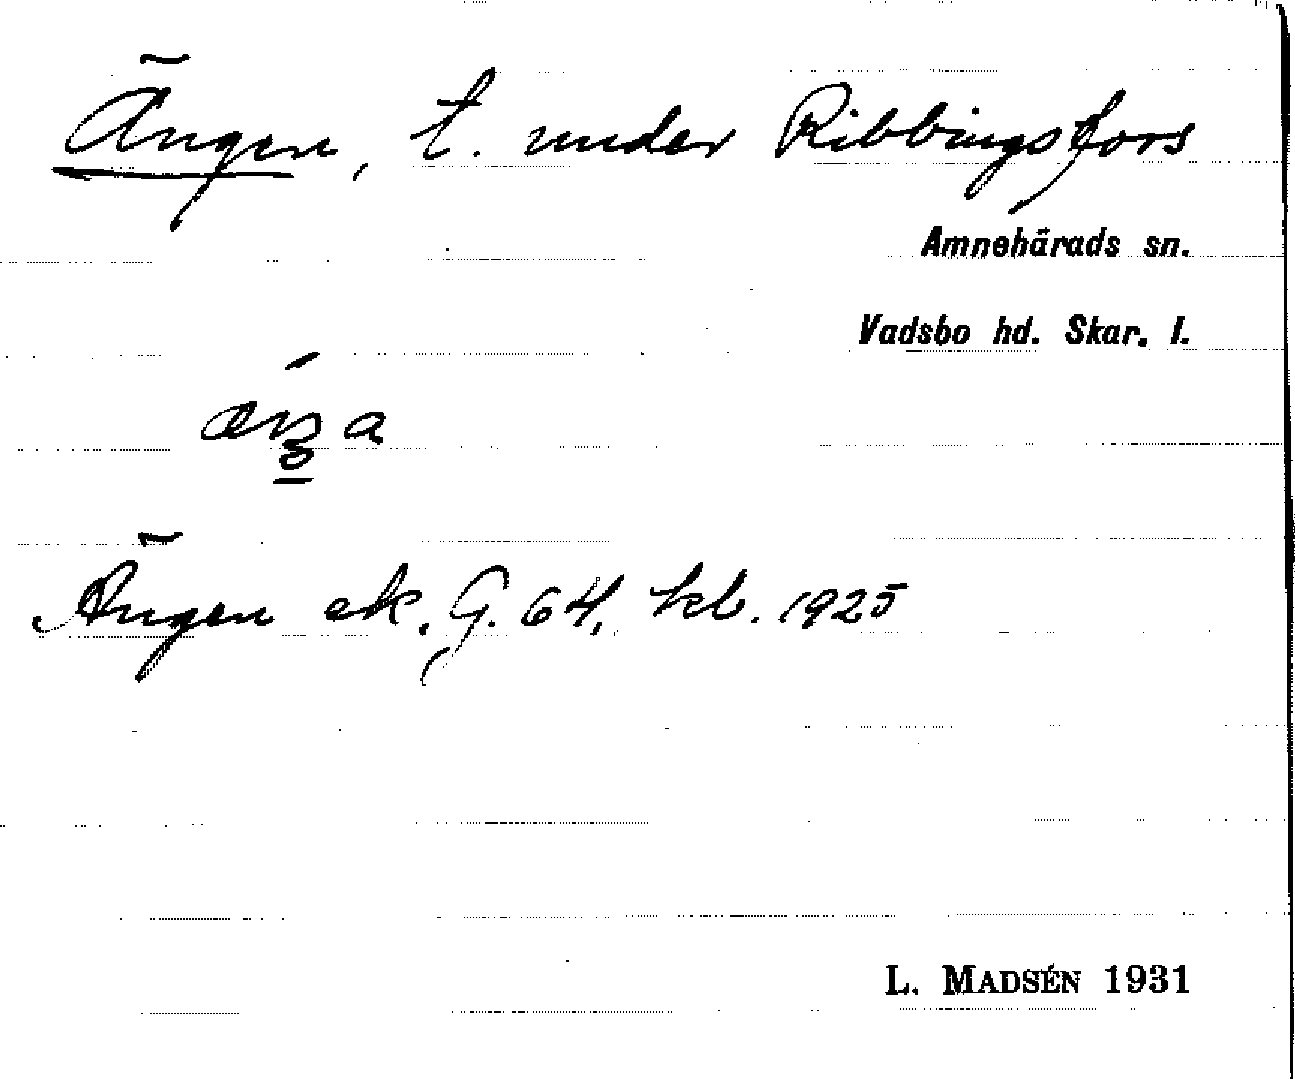 Ängen, t. under Ribbingsfors
Amnehärads sn.
Vadsbo hd. Skar. l.
Ängen ek. G. 64, kb. 1925
L. MADSÉN 1931